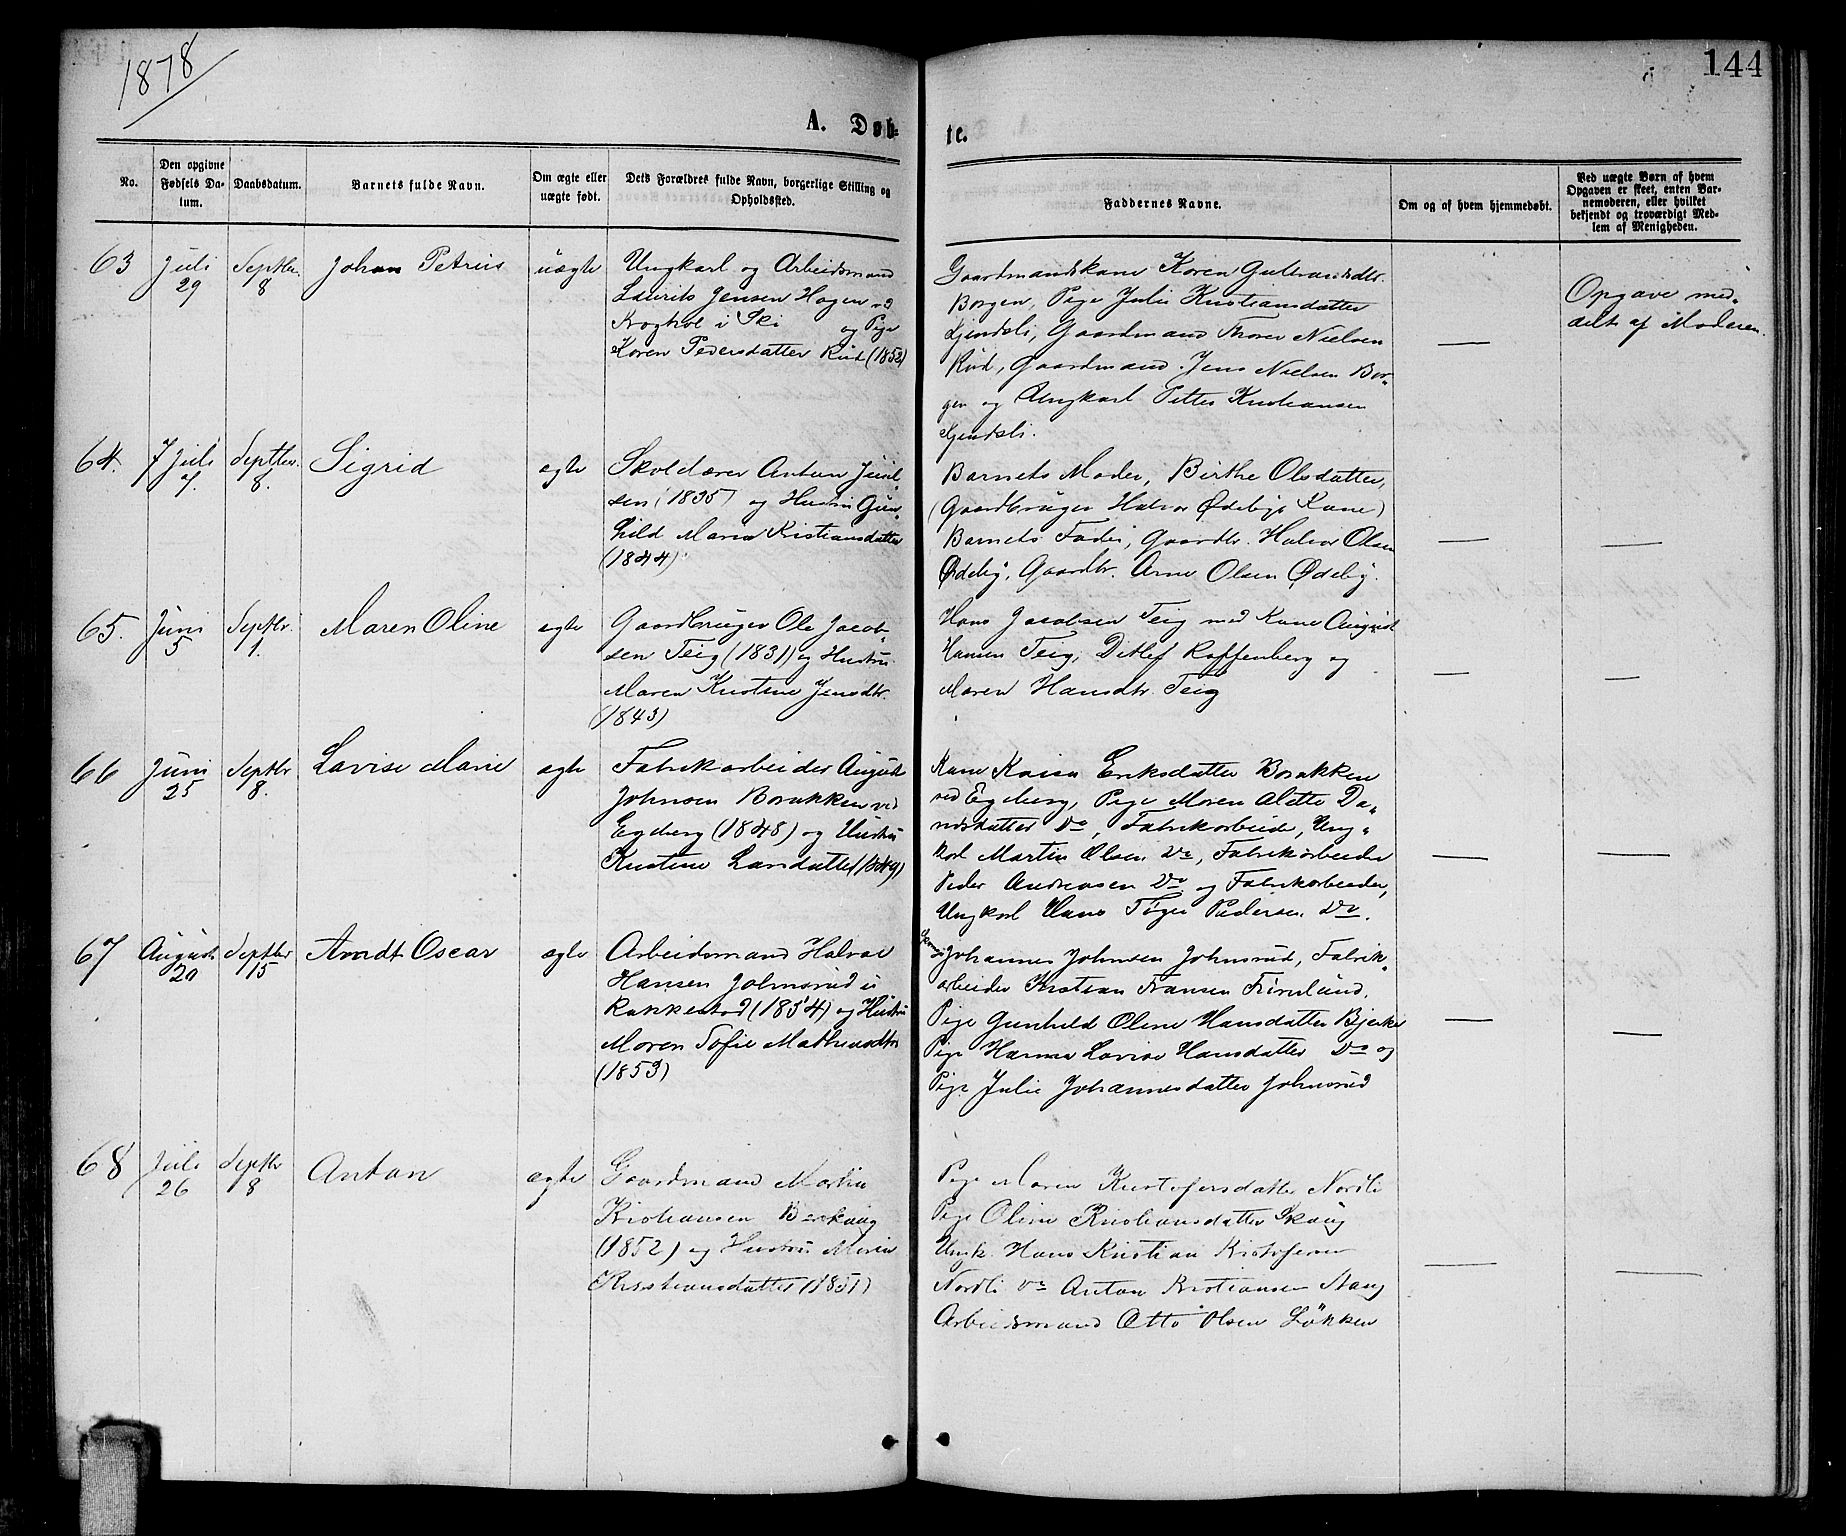 1878
144
A. Døb-
te.
No.
Den opgivne Fødsels Da-
tum.
Daabsdatum.
Barnets fulde Navn.
Om ægte eller uægte født.
Dets Forældres fulde Navn, borgerlige Stilling og Opholdssted.
Faddernes Navne.
Om og af hvem hjemmedøbt.
Ved uægte Børn af hvem
Opgaven er skeet, enten Bar-
nemoderen, eller hvilket
bekjendt og troværdigt Med-
lem af Menigheden.
63
Juli 29
Septbr. 8
Johan Petrus
uægte
Ungkarl og Arbeidsmand
Laurits Jensen Hagen
i Ski og Pige
Karen Pedersdatter Rud (1852)
Gaardmandskane Karen Gulbrandsdtr.
Borgen, Pige Julie Kristiansdatter
Gjendsli, Gaardmand Thorer Nielsen
Rud, Gaardmand Jens Nielsen Bor-
gen og Ungkarl Petter Kristiansen
Gjendsli.
—
Opgave med-
delt af Moderen.
64.
Juli 7
Septber. 8.
Sigrid
ægte
Skolelærer Anton Juul-
sen (1835) og Hustru Gun-
hild Maria Kristiansdatter
(1844)
Barnets Moder, Birthe Olsdatter,
(Gaardbruger Halvor Ødebys Kane)
Barnets Fader, Gaardbr. Halvor Olsen
Ødeby, Gaardbr. Arne Olsen Ødeby.
—
—
65.
Juni 5
Septbr. 1.
Maren Oline
ægte
Gaardbruger Ole Jacob-
sen Teig (1831) og Hustru
Maren Kristine Jensdtr.
(1843)
Hans Jacobsen Teig med Kane August
Hansen Teig, Ditlef Koffenberg og
Maren Hansdtr. Teig
—
—
66
Juni 25
Septbr 8.
Lovise Marie
ægte
Fabrikarbeider August
Johnsen Borakken ved
Egeberg (1848) og Hustru
Kristine Larsdatter (1849)
Kane Kaisa Eriksdatter Borakken
ved Egeberg, Pige Maren Alette Da-
vidsdatter Do, Fabrikarbeide, Ung-
karl Martin Olsen Do, Fabrikarbeider
Peder Andreasen Do og Fabrikarbeider,
Ungkarl Hans Tøger Pedersen Do.
—
—
67
August 20
Septbr 15
Arndt Oscar
ægte
Arbeidsmand Halvor
Hansen Johnsrud i
Rakkestad (1854) og Hustru
Maren Sofie Mathiasdtr
(1853)
Johannes Johnsen Johnsrud, Fabrik-
arbeider Kristian Fransen Furulund,
Pige Gunhild Oline Hansdatter Bjerke
Pige Hanna Lovise Hansdatter Do og
Pige Julie Johannesdatter Johnsrud
—
—
68
Juli 26
Septbr 8
Anton
ægte
Gaardmand Martin
Kristiansen
(1852) og Hustru Maria
Kristiansdatter (1851)
Pige Maren Kristofersdatter Nordli
Pige Oline Kristiansdatter Skaug
Ungk. Hans Kristian Kristofersen
Nordli Do Anton Kristiansen Skaug
Arbeidsmand Otto Olsen Løkken
—
—